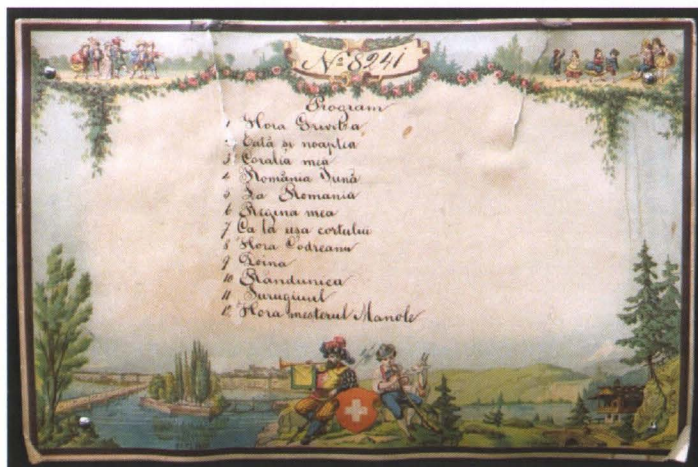 No 8241
Program
1 Hora Grivitza
2 Eată și noaptea
3 Coralia mea
4 România Jună
5 La Romania
6 Regina mea
7 Ca la usa cortului
8 Hora Codreanu
9 Doina
10 Rândunica
11 Surugiuul
12 Hora mesterul Manole